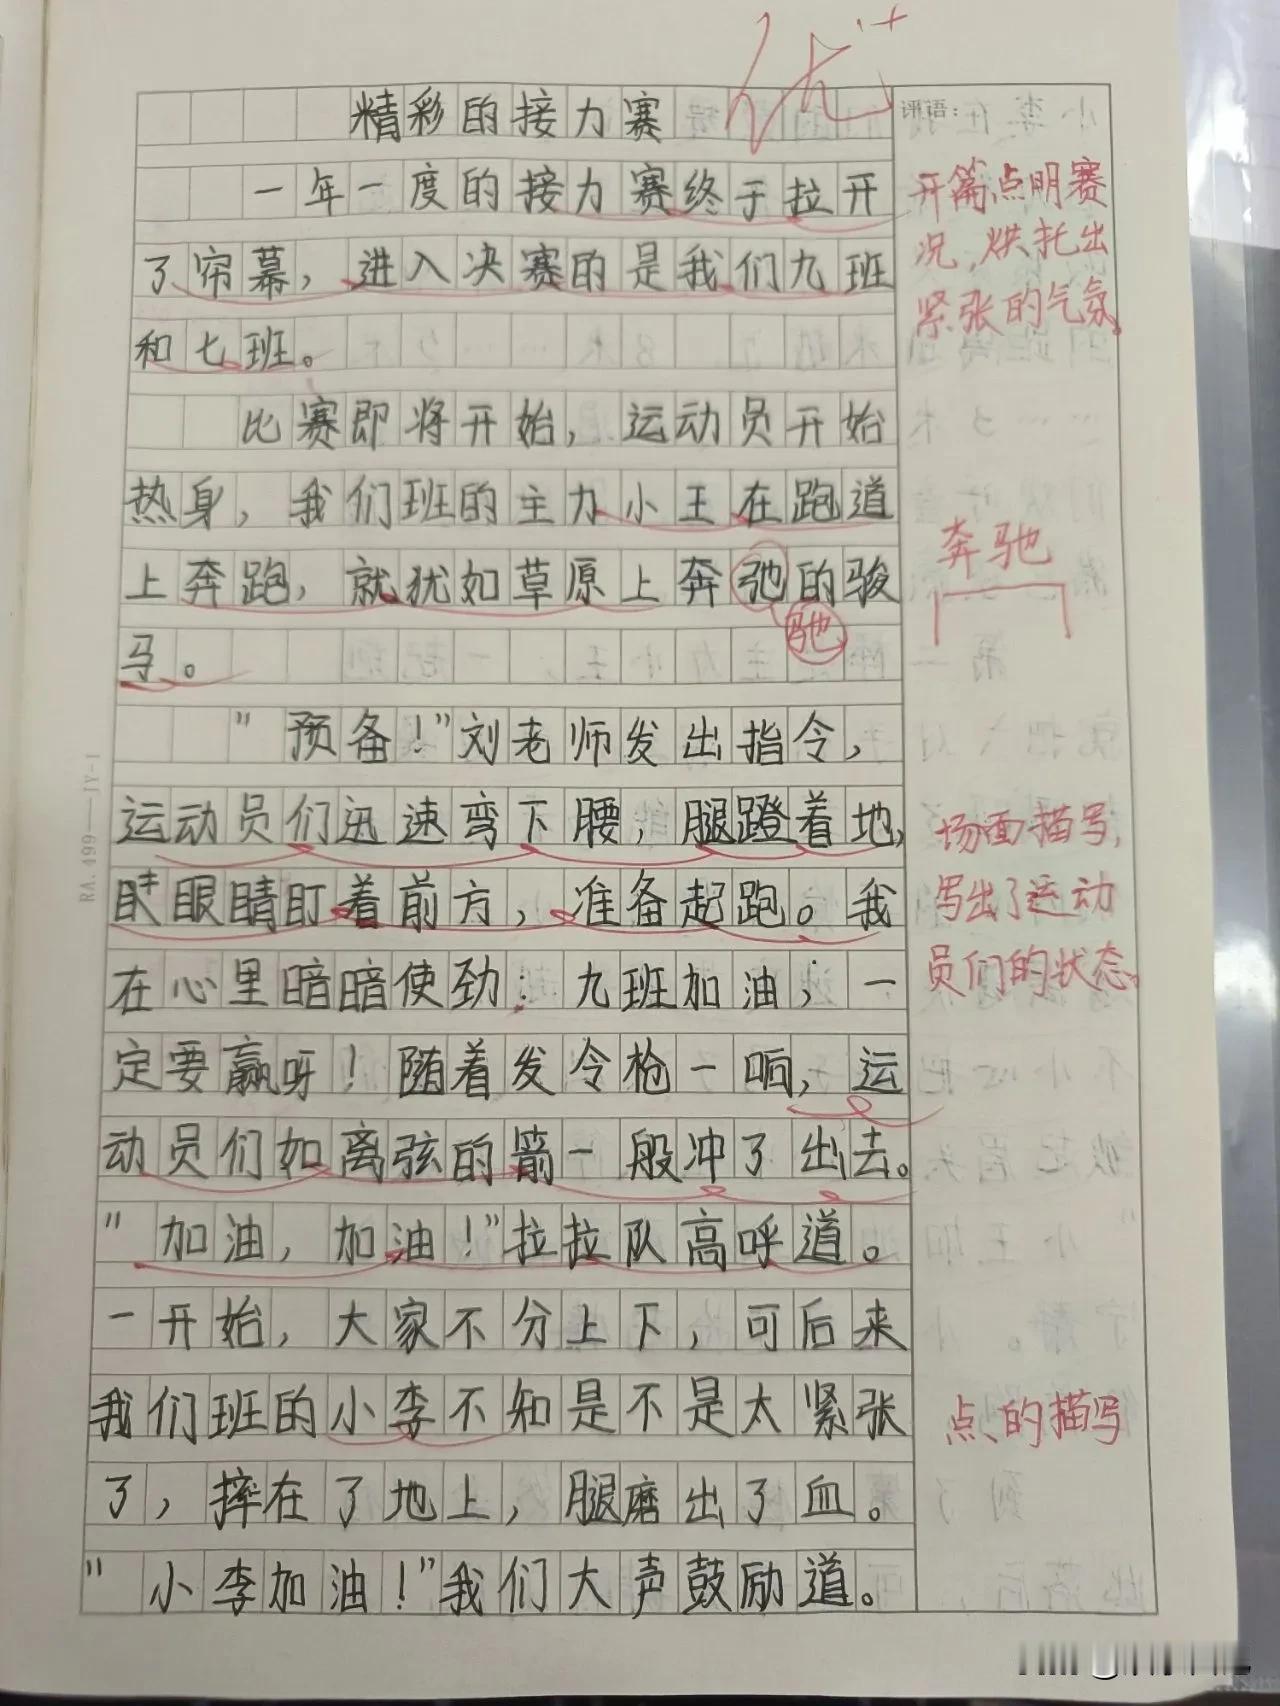 优+
精彩的接力赛
评语：
一年一度的接力赛终于拉开
了帘幕，进入决赛的是我们九班
和七班。
开篇点明赛
况，烘托出
紧张的气氛。
比赛即将开始，运动员开始
热身，我们班的主力小王在跑道
上奔跑，就犹如草原上奔弛的骏
驰
马。
奔驰
"预备！"刘老师发出指令，
运动员们迅速弯下腰，腿蹬着地，
眼睛盯着前方，准备起跑。我
在心里暗暗使劲：九班加油；一
定要赢呀！随着发令枪一响，运
动员们如离弦的箭一般冲了出去。
场面描写，
写出了运动
员们的状态。
"加油，加油！"拉拉队高呼道。
一开始，大家不分上下，可后来
我们班的小李不知是不是太紧张
了，摔在了地上，腿磨出了血。
"小李加油！"我们大声鼓励道。
点的描写
RA.499——JY-1